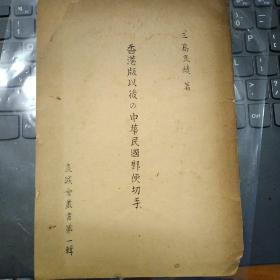 三島良績 著
香港版以後の中華民國郵便切手
良績會叢書第一輯